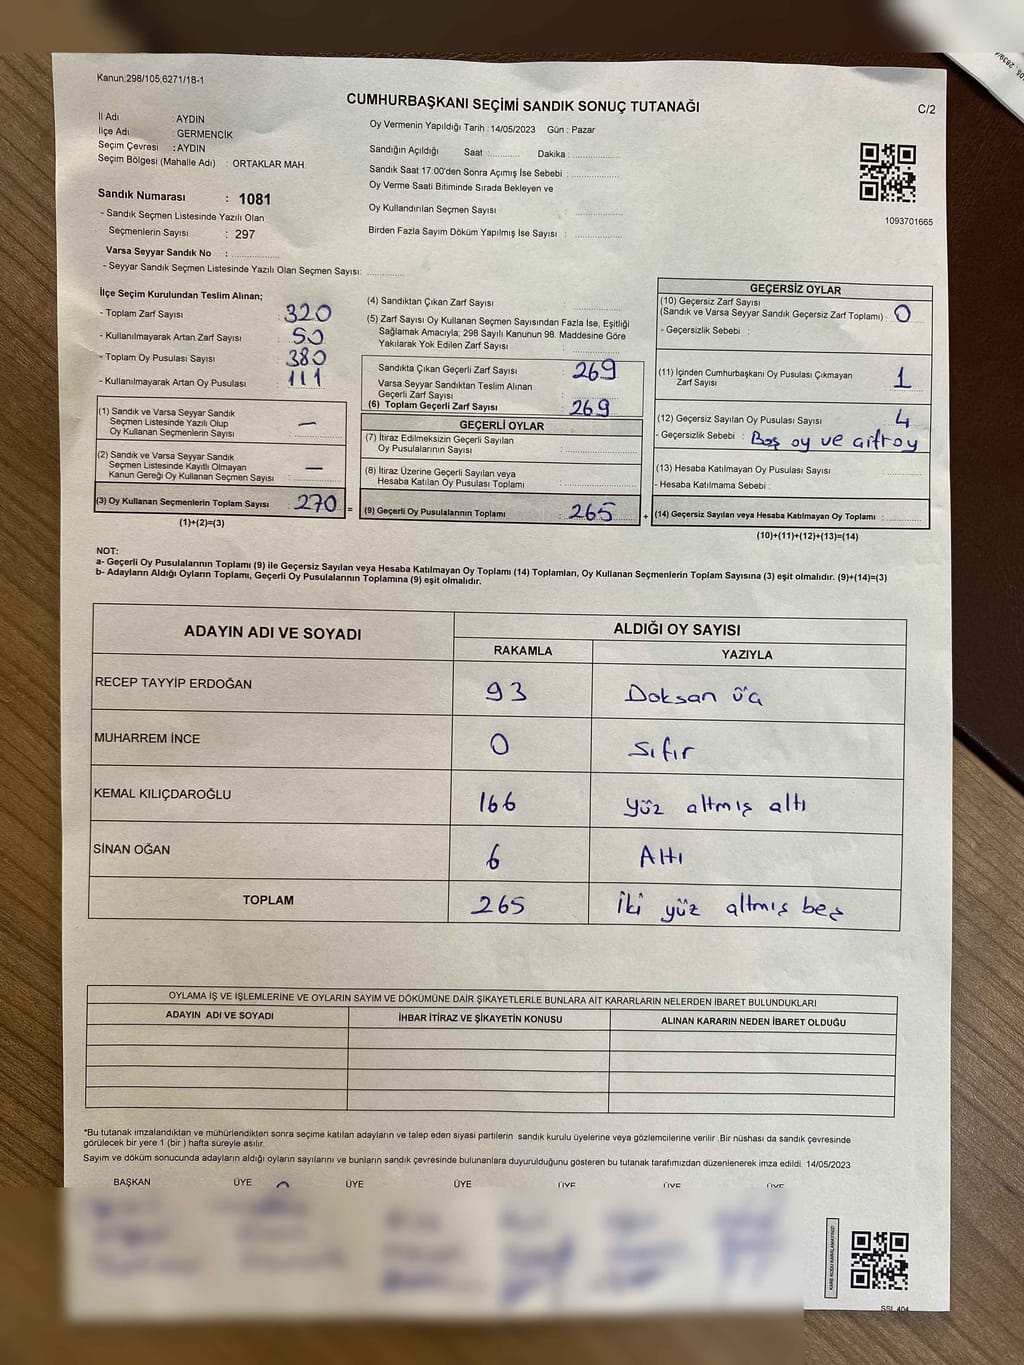 Kanun,298/105,6271/18-1
CUMHURBAŞKANI SEÇİMİ SANDIK SONUÇ TUTANAĞI
C/2
İl Adı : AYDIN
İlçe Adı : GERMENCİK
Seçim Çevresi : AYDIN
Seçim Bölgesi (Mahalle Adı) : ORTAKLAR MAH.
Oy Vermenin Yapıldığı Tarih : 14/05/2023 Gün : Pazar
Sandığın Açıldığı Saat :.......... Dakika :................
Sandık Saat 17:00'den Sonra Açımış İse Sebebi :................
Oy Verme Saati Bitiminde Sırada Bekleyen ve
Oy Kullandırılan Seçmen Sayısı :................
Birden Fazla Sayım Döküm Yapılmış İse Sayısı :................
1093701665
Sandık Numarası : 1081
- Sandık Seçmen Listesinde Yazılı Olan
Seçmenlerin Sayısı : 297
Varsa Seyyar Sandık No :................
- Seyyar Sandık Seçmen Listesinde Yazılı Olan Seçmen Sayısı:............
İlçe Seçim Kurulundan Teslim Alınan;
- Toplam Zarf Sayısı : 320
- Kullanılmayarak Artan Zarf Sayısı : 50
- Toplam Oy Pusulası Sayısı : 380
- Kullanılmayarak Artan Oy Pusulası : 111
(1) Sandık ve Varsa Seyyar Sandık
Seçmen Listesinde Yazılı Olup
Oy Kullanan Seçmenlerin Sayısı : —
(2) Sandık ve Varsa Seyyar Sandık
Seçmen Listesinde Kayıtlı Olmayan
Kanun Gereği Oy Kullanan Seçmen Sayısı : —
(3) Oy Kullanan Seçmenlerin Toplam Sayısı : 270 =
(1)+(2)=(3)
(4) Sandıktan Çıkan Zarf Sayısı :................
(5) Zarf Sayısı Oy Kullanan Seçmen Sayısından Fazla İse, Eşitliği
Sağlamak Amacıyla; 298 Sayılı Kanunun 98. Maddesine Göre
Yakılarak Yok Edilen Zarf Sayısı :................
Sandıkta Çıkan Geçerli Zarf Sayısı : 269
Varsa Seyyar Sandıktan Teslim Alınan
Geçerli Zarf Sayısı :
(6) Toplam Geçerli Zarf Sayısı : 269
GEÇERLİ OYLAR
(7) İtiraz Edilmeksizin Geçerli Sayılan
Oy Pusulalarının Sayısı :................
(8) İtiraz Üzerine Geçerli Sayılan veya
Hesaba Katılan Oy Pusulası Toplamı :................
(9) Geçerli Oy Pusulalarının Toplamı : 265 +
GEÇERSİZ OYLAR
(10) Geçersiz Zarf Sayısı
(Sandık ve Varsa Seyyar Sandık Geçersiz Zarf Toplamı) : 0
- Geçersizlik Sebebi :
(11) İçinden Cumhurbaşkanı Oy Pusulası Çıkmayan
Zarf Sayısı : 1
(12) Geçersiz Sayılan Oy Pusulası Sayısı : 4
- Geçersizlik Sebebi : Boş oy ve çift oy
(13) Hesaba Katılmayan Oy Pusulası Sayısı :............
- Hesaba Katılmama Sebebi :
(14) Geçersiz Sayılan veya Hesaba Katılmayan Oy Toplamı :............
(10)+(11)+(12)+(13)=(14)
NOT:
a- Geçerli Oy Pusulalarının Toplamı (9) ile Geçersiz Sayılan veya Hesaba Katılmayan Oy Toplamı (14) Toplamları, Oy Kullanan Seçmenlerin Toplam Sayısına (3) eşit olmalıdır. (9)+(14)=(3)
b- Adayların Aldığı Oyların Toplamı, Geçerli Oy Pusulalarının Toplamına (9) eşit olmalıdır.
ADAYIN ADI VE SOYADI
ALDIĞI OY SAYISI
RAKAMLA YAZIYLA
RECEP TAYYİP ERDOĞAN 93 Doksan üç
MUHARREM İNCE 0 Sıfır
KEMAL KILIÇDAROĞLU 166 yüz altmış altı
SİNAN OĞAN 6 Altı
TOPLAM 265 İki yüz altmış beş
OYLAMA İŞ VE İŞLEMLERİNE VE OYLARIN SAYIM VE DÖKÜMÜNE DAİR ŞİKAYETLERLE BUNLARA AİT KARARLARIN NELERDEN İBARET BULUNDUKLARI
ADAYIN ADI VE SOYADI İHBAR İTİRAZ VE ŞİKAYETİN KONUSU ALINAN KARARIN NEDEN İBARET OLDUĞU
*Bu tutanak imzalandıktan ve mühürlendikten sonra seçime katılan adayların ve talep eden siyasi partilerin sandık kurulu üyelerine veya gözlemcilerine verilir .Bir nüshası da sandık çevresinde
görülecek bir yere 1 (bir ) hafta süreyle asılır.
Sayım ve döküm sonucunda adayların aldığı oyların sayılarını ve bunların sandık çevresinde bulunanlara duyurulduğunu gösteren bu tutanak tarafımızdan düzenlenerek imza edildi. 14/05/2023
BAŞKAN ÜYE ÜYE ÜYE ÜYE ÜYE ÜYE
KARE KODU KARALAMAYINIZ!
SSL 404